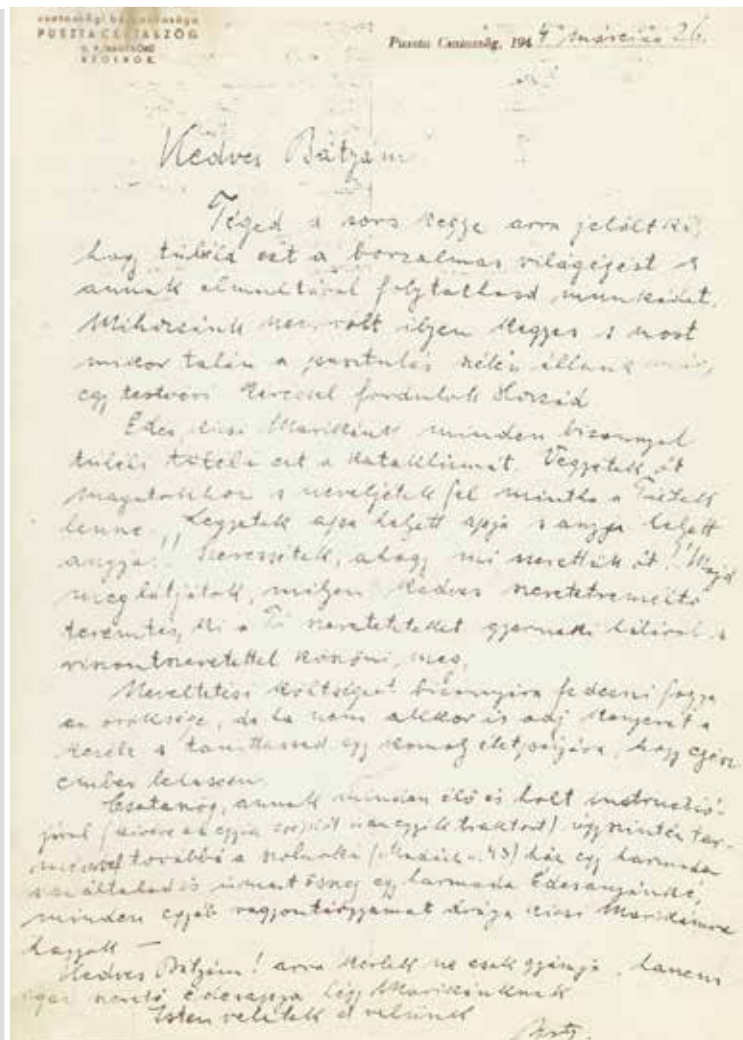 PUSZTA CSATASZÖG
Puszta Csataszög, 194 március 26.
Kedves Bátyám
Téged a sors kegye arra jelölt ki,
hogy túléld ezt a borzalmas világégést s
annak elmultával folytathasd munkádat.
Mihozzánk nem volt ilyen kegyes s most
mikor talán a pusztulás szélén állunk
egy testvéri kéréssel fordulok Hozzád
Édes, kicsi Marikánk minden bizonnyal
túléli ezt a kataklizmát. Vegyétek őt
magatokhoz s neveljétek fel mintha a Tiétek
lenne. Legyetek apja helyett apja s anyja helyett
anyja! Szeressétek, ahogy mi szerettük őt! Majd
meglátjátok, milyen kedves szeretetreméltó
teremtés, ki a Ti szereteteteket gyermeki hálával s
viszontszeretettel köszöni meg.
Neveltetési költségeit bizonyára fedezni fogja
az öröksége, de ha nem akkor is adj kenyeret a
kezébe s taníttassad egy komoly életpályára, hogy egész
ember lehessen.
Csataszög, annak minden élő és holt instructió-
jával (kivéve az egyik cséplőt s az egyik traktort) úgyszintén ter-
továbbá a szolnoki ház egy harmada
egy harmada Édesanyánké,
minden egyéb vagyontárgyamat drága kicsi Marikámra
hagyok —
Kedves Bátyám! arra kérlek ne csak gyámja, hanem
igazi szerető édesapja légy Marikánknak
Isten veletek s velünk